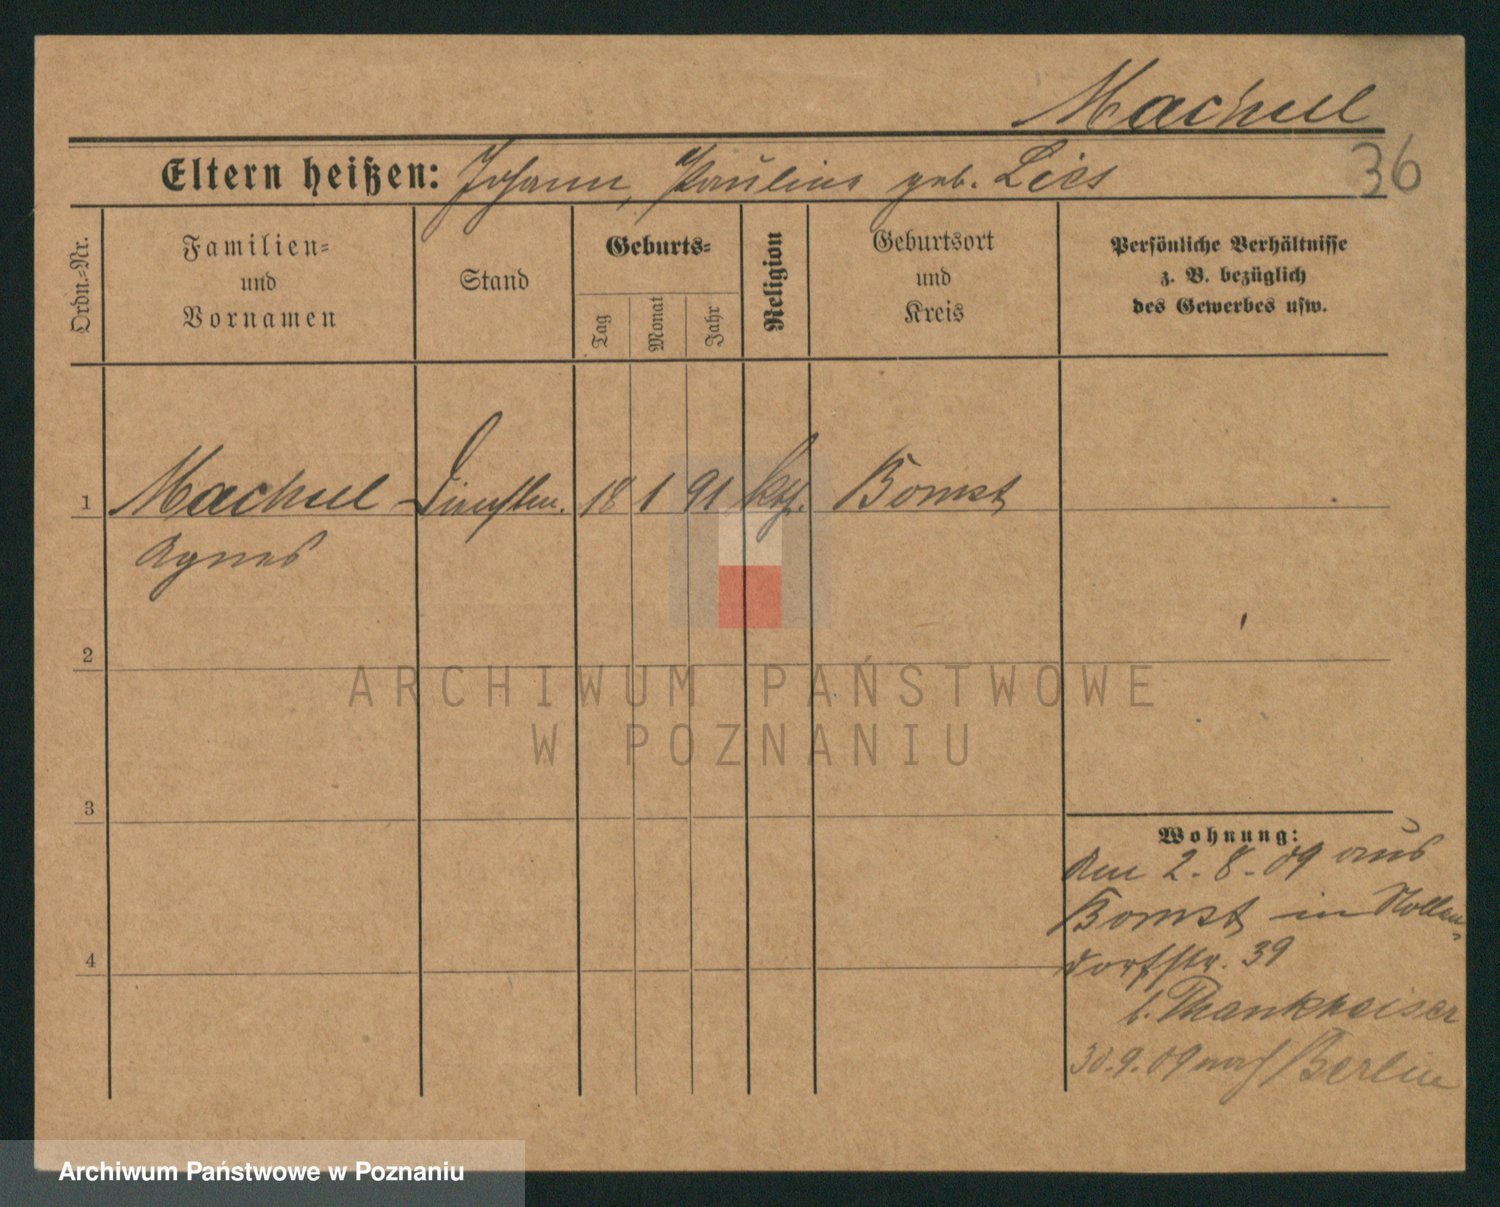 Machul
36
Eltern heißen: Johann, Pauline geb. Lies
Ordn.-Nr.
Familien-
und
Vornamen
Stand
Geburts-
Tag
Monat
Jahr
Religion
Geburtsort
und
Kreis
Persönliche Verhältnisse
z. B. bezüglich
des Gewerbes usw.
1 Machul Dienstm. 18 1 91 kth. Bomst
Agnes
2
3
4
Wohnung:
Am 2.8.09 aus
Bomst in Nollen-
dorfstr. 39
b. Thankheiser
30.9.09 nach Berlin
ARCHIWUM PAŃSTWOWE
W POZNANIU
Archiwum Państwowe w Poznaniu